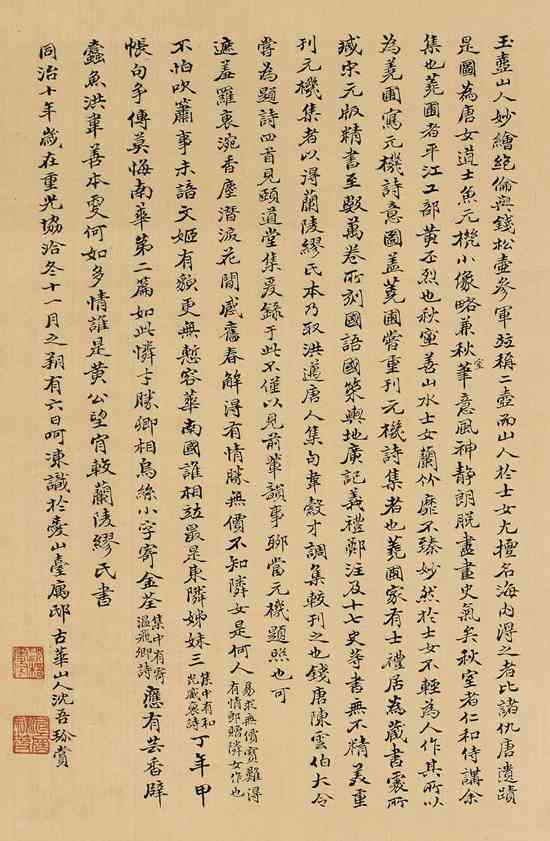 玉壺山人妙繪絕倫與錢松壺參軍並稱二壺而山人於士女尤擅名海內得之者比諸仇唐遺蹟
是圖為唐女道士魚元機小像略兼秋室筆意風神靜朗脫盡畫史氣矣秋室者仁和侍講余
集也蕘圃者平江工部黃丕烈也秋室善山水士女蘭竹靡不臻妙然於士女不輕為人作其所以
為蕘圃寫元機詩意圖蓋蕘圃嘗重刊元機詩集者也蕘圃家有士禮居為藏書處所
臧宋元版精書至數萬卷所刻國語國策輿地廣記義禮鄭注及十七史等書無不精美重
刊元機集者以得蘭陵繆氏本乃取洪邁唐人集句韋縠才調集較刊之也錢唐陳雲伯大令
嘗為題詩四首見頤道堂集爰錄于此不僅以見前輩韻事聊當元機題照也可
遮羞羅裹涴香塵潛淚花間感舊春解得有情勝無價不知隣女是何人易求無價寶難得有情郎贈隣女作也
不怕吹簫事未諳文姬有貌更無慙容華南國誰相並最是東隣姊妹三集中有和光威裒詩丁年甲
帳句手傳莫悔南華第二篇如此憐才勝卿相烏絲小字寄金荃集中有寄溫飛卿詩應有芸香辟
蠹魚洪韋善本更何如多情誰是黃公望宵較蘭陵繆氏書
同治十年歲在重光協洽冬十一月之朔有六日呵凍識於愛山臺寓邸古華山人沈吾珍賞